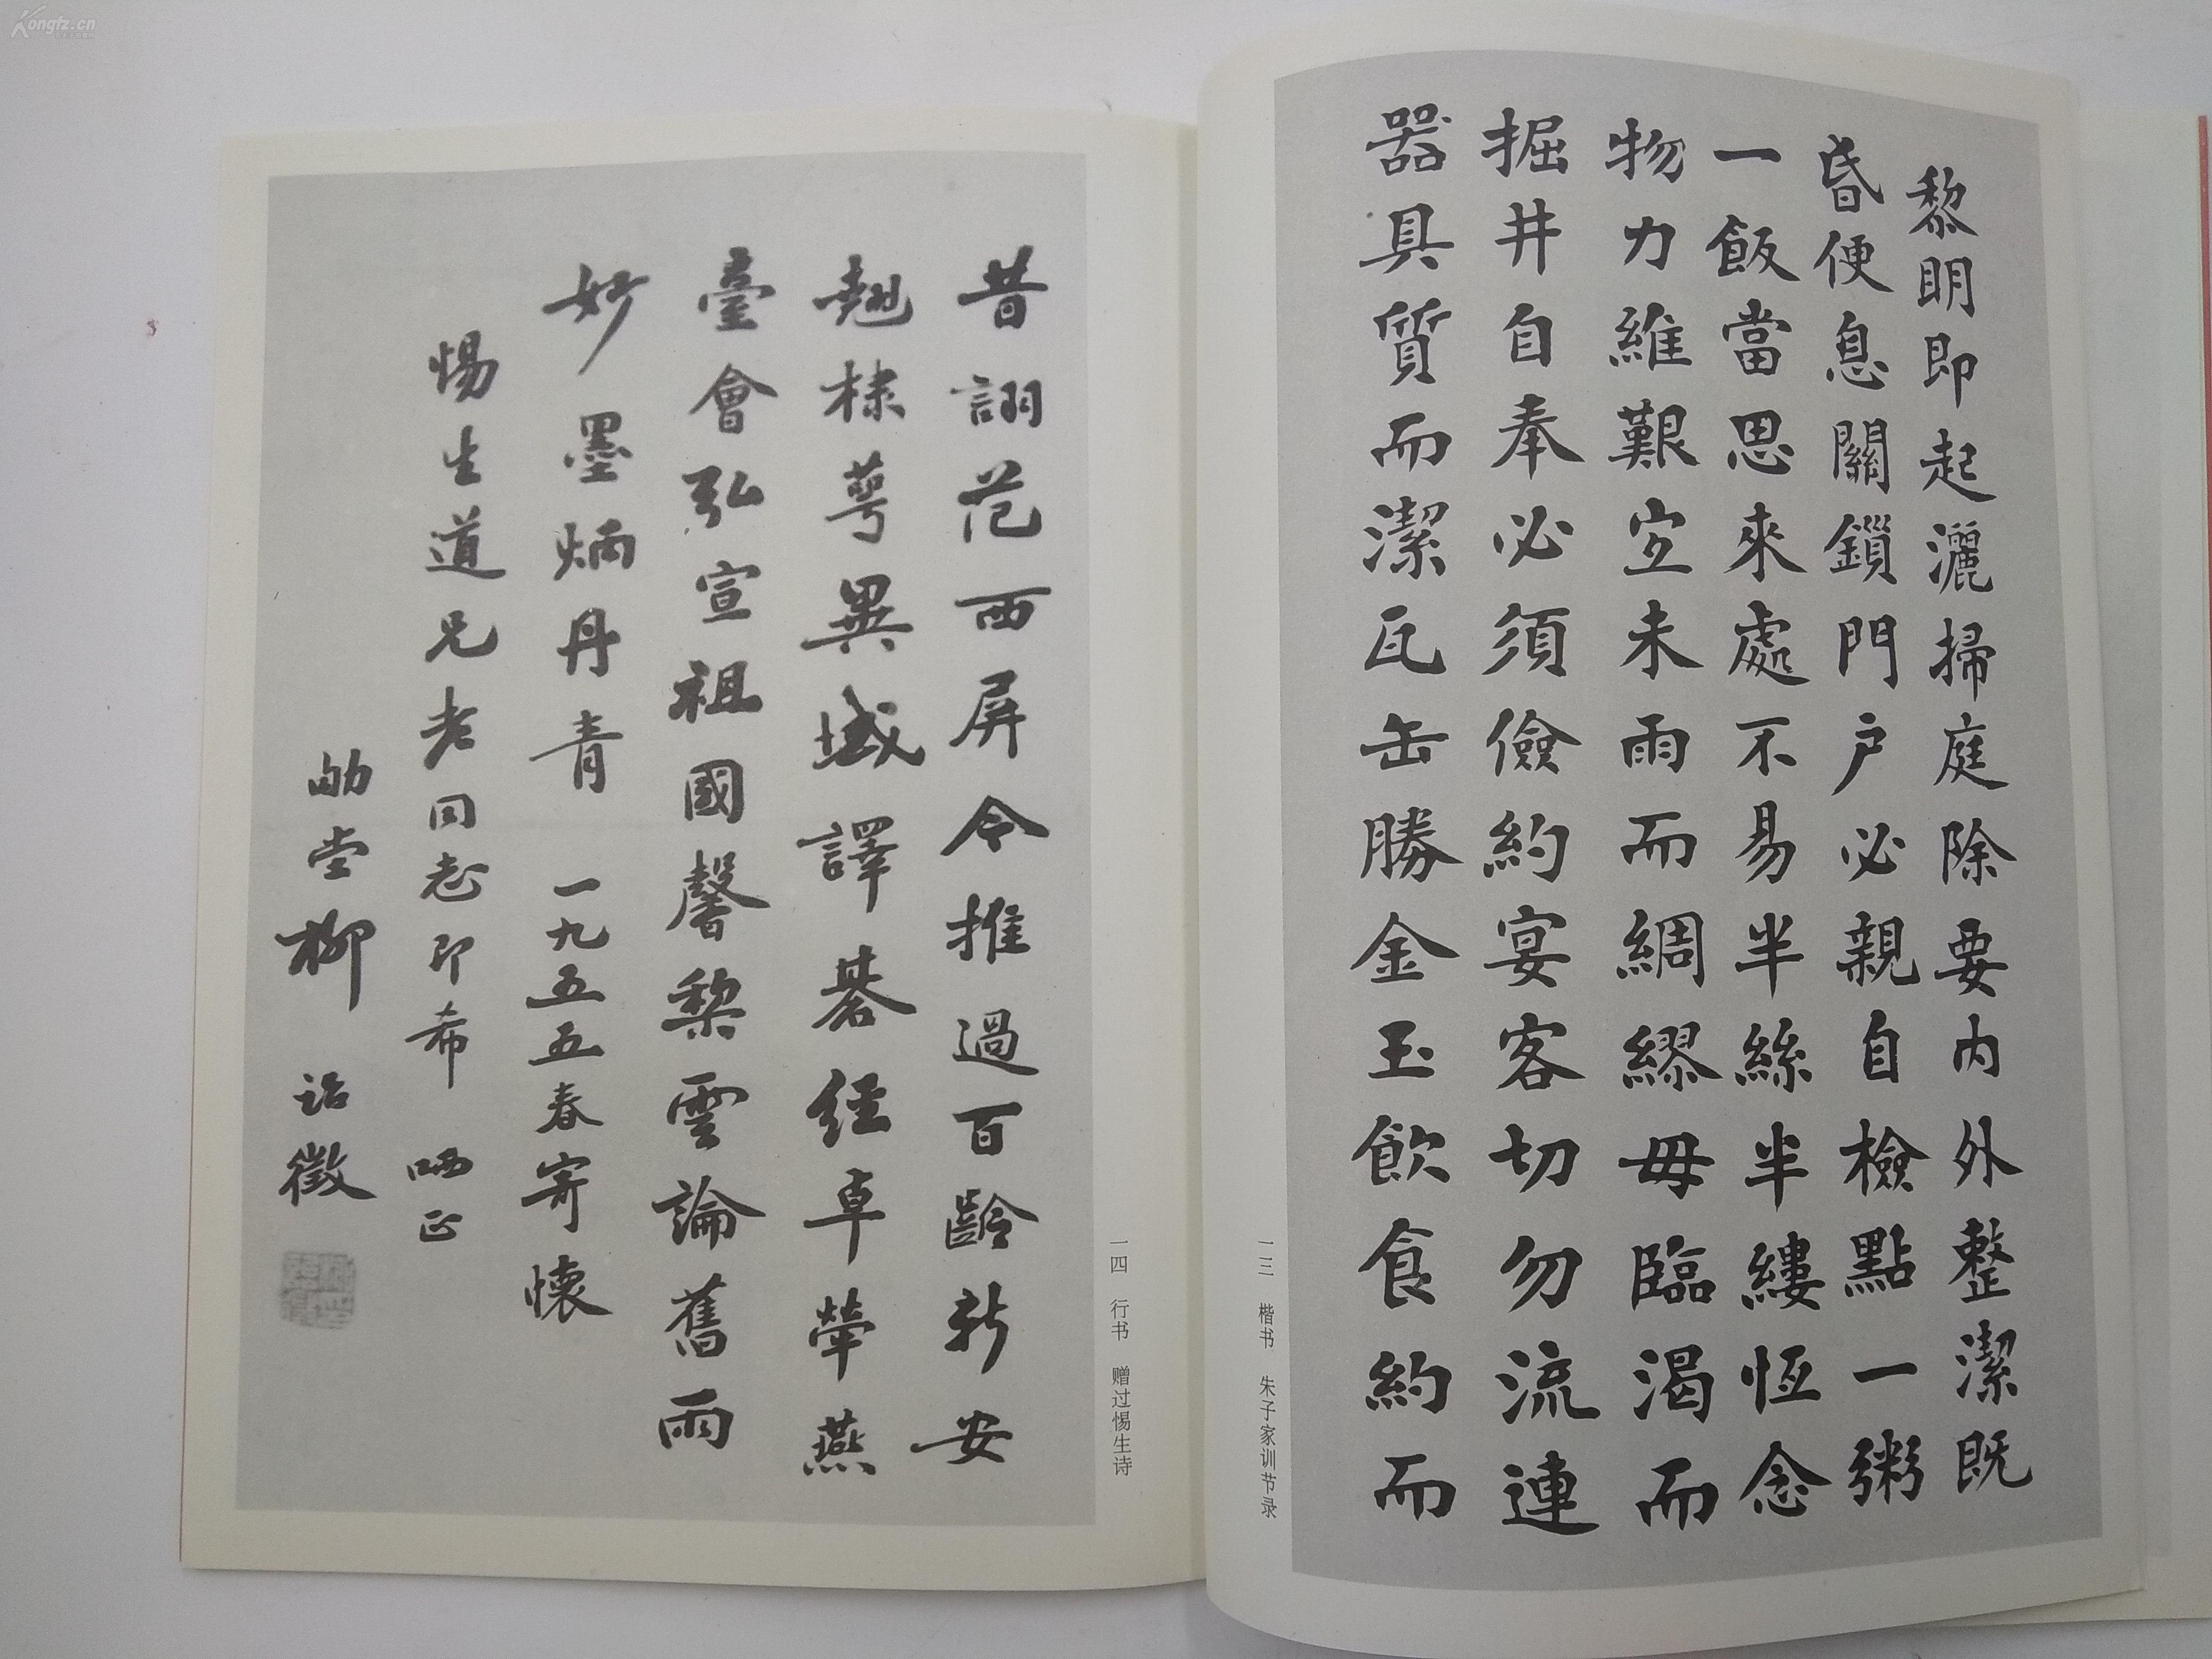 Kongfz.cn
黎明即起灑掃庭除要内外整潔既
昏便息關鎖門戶必親自檢點一粥
一飯當思來處不易半絲半縷恆念
物力維艱宜未雨而綢繆毋臨渴而
掘井自奉必須儉約宴客切勿流連
器具質而潔瓦缶勝金玉飲食約而
一三 楷书 朱子家训节录
一四 行书 赠过惕生诗
昔詡范西屏今推過百齡新安
趙棣萼異域譯棊經卓犖燕
臺會弘宣祖國馨黎雲論舊雨
妙墨炳丹青 一九五五春寄懷
惕生道兄老同志即希 哂正
劬堂柳 詒徵